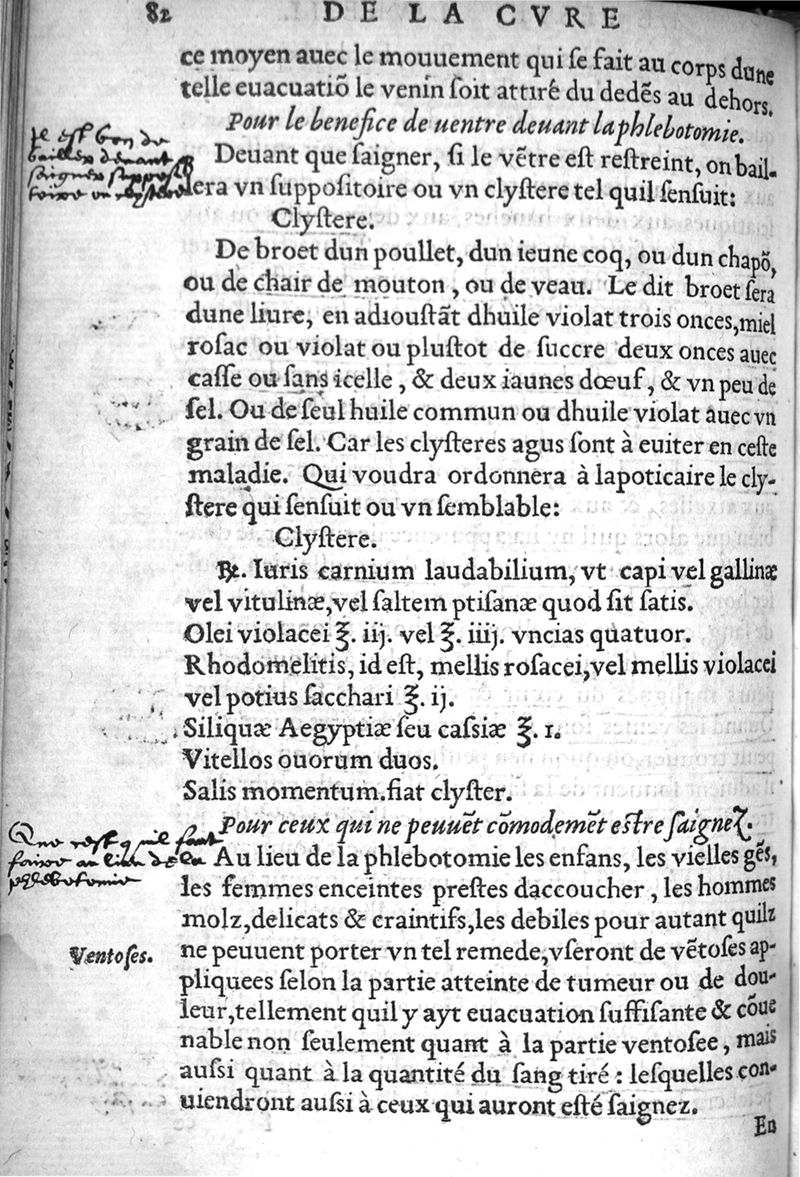 82 DE LA CVRE
ce moyen auec le mouuement qui ſe fait au corps dune
telle euacuatiō le venin ſoit attiré du dedēs au dehors.
Pour le benefice de uentre deuant la phlebotomie.
Il est bon de
bailler deuant
saigner supposi
toire ou clystere
Deuant que ſaigner, ſi le vētre eſt reſtreint, on bail-
lera vn ſuppoſitoire ou vn clyſtere tel quil ſenſuit:
Clyſtere.
De broet dun poullet, dun ieune coq, ou dun chapō,
ou de chair de mouton, ou de veau. Le dit broet ſera
dune liure, en adiouſtāt dhuile violat trois onces, miel
roſac ou violat ou pluſtot de ſuccre deux onces auec
caſſe ou ſans icelle, & deux iaunes dœuf, & vn peu de
ſel. Ou de ſeul huile commun ou dhuile violat auec vn
grain de ſel. Car les clyſteres agus ſont à euiter en ceſte
maladie. Qui voudra ordonnera à lapoticaire le cly-
ſtere qui ſenſuit ou vn ſemblable:
Clyſtere.
℞. Iuris carnium laudabilium, vt capi vel gallinæ
vel vitulinæ, vel ſaltem ptiſanæ quod ſit ſatis.
Olei violacei ℥. iij. vel ℥. iiij. vncias quatuor.
Rhodomelitis, id eſt, mellis roſacei, vel mellis violacei
vel potius ſacchari ℥. ij.
Siliquæ Aegyptiæ ſeu caſsiæ ℥. 1.
Vitellos ouorum duos.
Salis momentum. fiat clyſter.
Pour ceux qui ne peuuēt cōmodemēt eſtre ſaignez.
Que c'est qu'il faut
faire au lieu de la
phlebotomie
Au lieu de la phlebotomie les enfans, les vielles gēs,
les femmes enceintes preſtes daccoucher, les hommes
molz, delicats & craintifs, les debiles pour autant quilz
Ventoſes.
ne peuuent porter vn tel remede, vſeront de vētoſes ap-
pliquees ſelon la partie atteinte de tumeur ou de dou-
leur, tellement quil y ayt euacuation ſuffiſante & cōue
nable non ſeulement quant à la partie ventoſee, mais
auſsi quant à la quantité du ſang tiré: leſquelles con-
uiendront auſsi à ceux qui auront eſté ſaignez.
En